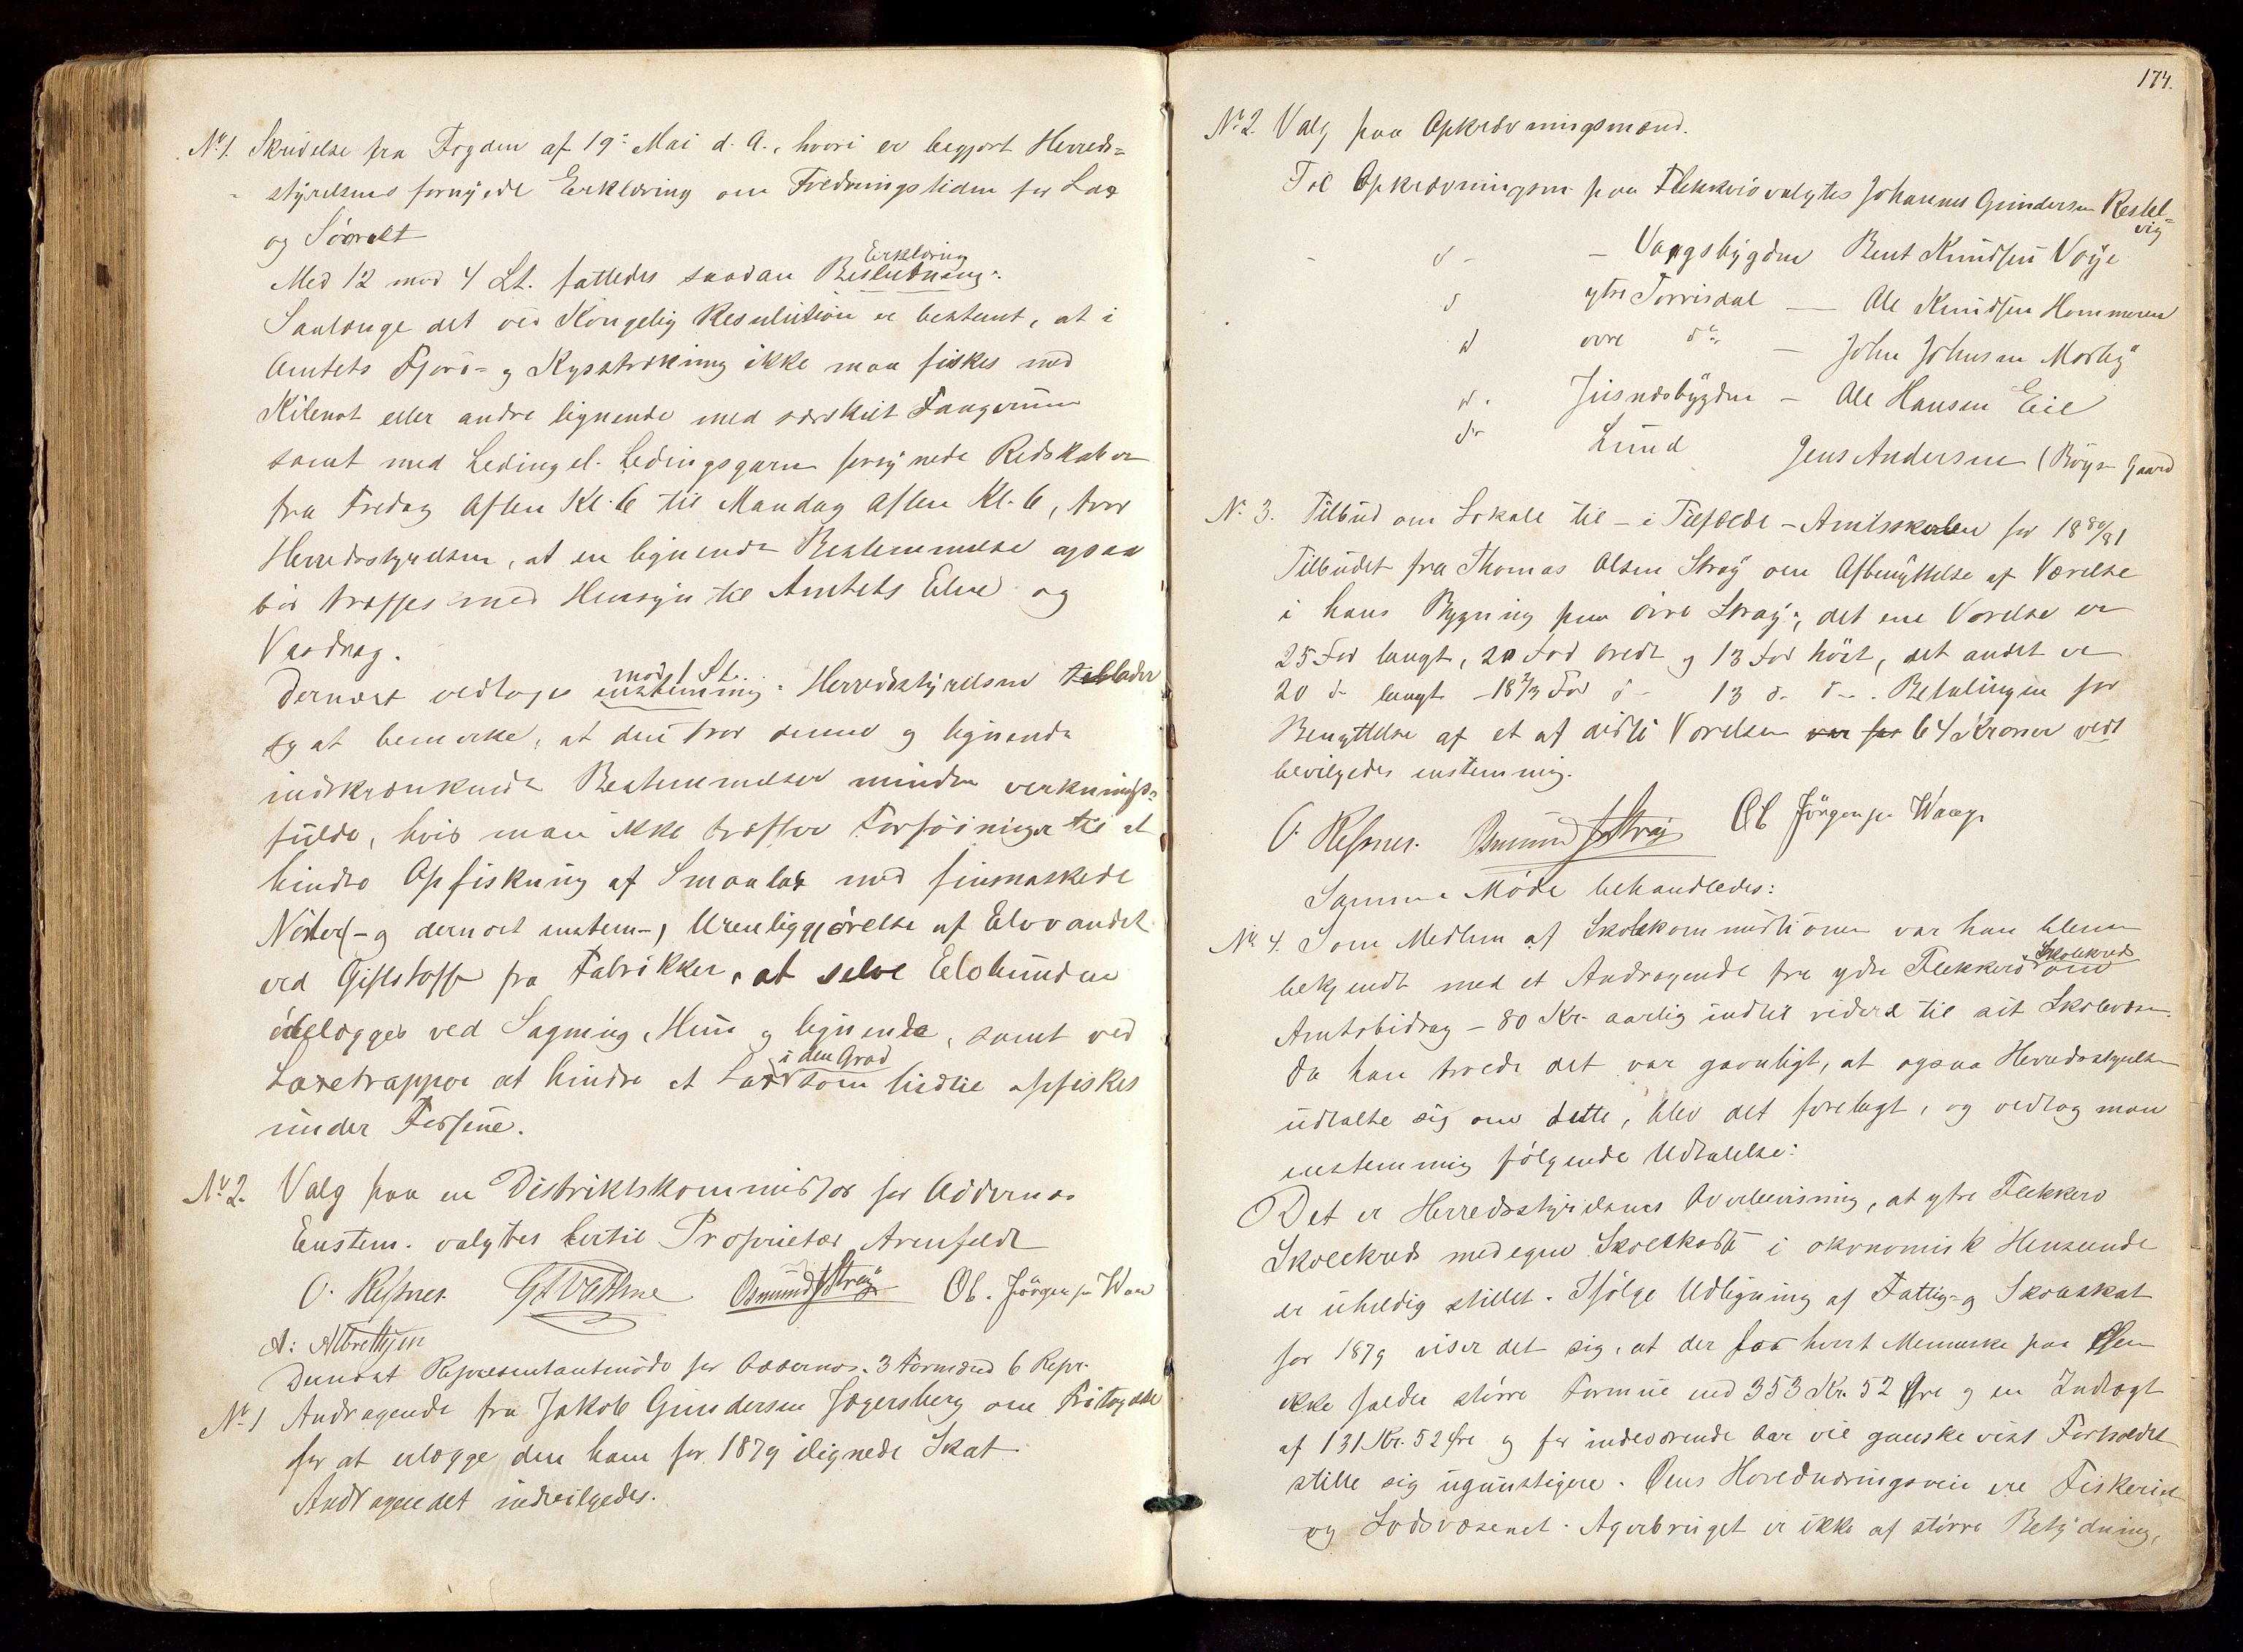 No 1. Skrivelse fra Fogden af 19de Mai d. A., hvori er begjært Herreds=
styrelsens fornyede Erklæring om Fredningstiden for Lax
og Söörret
Erklæring
Med 12 mod 4 St. fattedes saadan Beslutning:
Saalænge det ved Kongelig Resolution er bestemt, at i
Amtets Fjord- og Kyststrækning ikke maa fiskes med
Kilenot eller andre lignende med særskilt Fangerum
samt med Leding el. Ledingsgarn forsynede Redskaber
fra Fredag Aften Kl. 6 til Mandag Aften Kl. 6, tror
Herredsstyrelsen, at en lignende Bestemmelse ogsaa
bør træffes med Hensyn til Amtets Elve og
Vasdrag.
mod 1 St.
Dernæst vedtoges enstemmig: Herredsstyrelsen tillader
sig at bemerke, at den tror denne og lignende
indskrænkende Bestemmelser mindre verknings=
fulde, hvis man ikke træffer Forföininger til at
hindre Opfiskning af Smaalax med finmaskede
Nöter (- og dernæst enstem-) Urenliggjörelse af Elvvandet
ved Giftstoffe fra Fabrikker, at selve Elvbunden
ödelægges ved Sagmug, Mun og lignende, samt ved
i den Grad
Laxetrapper at hindre at Lax som hidtil opfiskes
under Fossene.
No 2. Valg paa en Distriktskommissær for Oddernes
Enstem. valgtes hertil Proprietær Arenfeldt
O. Kessner. Osmund Stray Ol. Jörgensen Waag
A: Albrethsen
Dernæst Repræsentantmöde for Oddernes. 3 Formænd 6 Repr.
No 1 Andragende fra Jakob Gundersen Jægersberg om Fritagelse
for at erlægge den ham for 1879 ilignede Skat
Andragendet indvilgedes.
174.
No 2. Valg paa Opkrævningsmænd.
Til Opkrævningsm. paa Flekkerö valgtes Johannes Gundersen Kestel=
vig
- d - - Vaagsbygden Bent Knudsen Vöye
d ytre Torrisdal — Ole Knudsen Hommeren
d övre do — John Johnsen Mosby
d. Jusnesbygden - Ole Hansen Eie
do Lund Jens Andersen (Röys Gaard
No 3. Tilbud om Lokale til - i Tilfælde - Amtsskolen for 1880/81
Tilbudet fra Thomas Olsen Stray om Afbenyttelse af Værelse
i hans Bygning paa övre Stray; det ene Værelse er
25 Fod langt, 20 Fod bredt og 13 Fod höit, det andet er
20 d langt - 18 2/3 Fod d - 13 d. d. . Betalingen for
Benyttelse af et af disse Værelser var for 64 Kroner vedt
bevilgedes enstemmig.
O. Kessner. Osmund Stray Ol Jörgensen Waag
Samme Möde behandledes:
No 4. Som Medlem af Skolekommissionen var han bleven
Skolekreds
bekjendt med et Andragende fra ydre Flekkerö om
Amtsbidrag - 80 Kr. aarlig indtil videre til sit Skolevæsen.
Da han troede det var gavnligt, at ogsaa Herredsstyrelsen
udtalte sig om dette, blev det forelagt, og vedtog man
enstemmig fölgende Udtalelse:
Det er Herredsstyrelsens Overbevisning, at ytre Flekkerö
Skolekreds med egen Skolekasse i økonomisk Henseende
er uheldig stillet. Ifölge Udligning af Fattig- og Skoleskat
for 1879 viser det sig, at der paa hvert Menneske paa Øen
ikke falder större Formue end 353 Kr. 52 Øre og en Indtægt
af 131 Kr. 52 Øre og for indeværende Aar vil ganske vist Forholdet
stille sig ugunstigere. Øens Hovednæringsveie ere Fiskeriet
og Lodsvæsenet. Agerbruget er ikke af större Betydning,